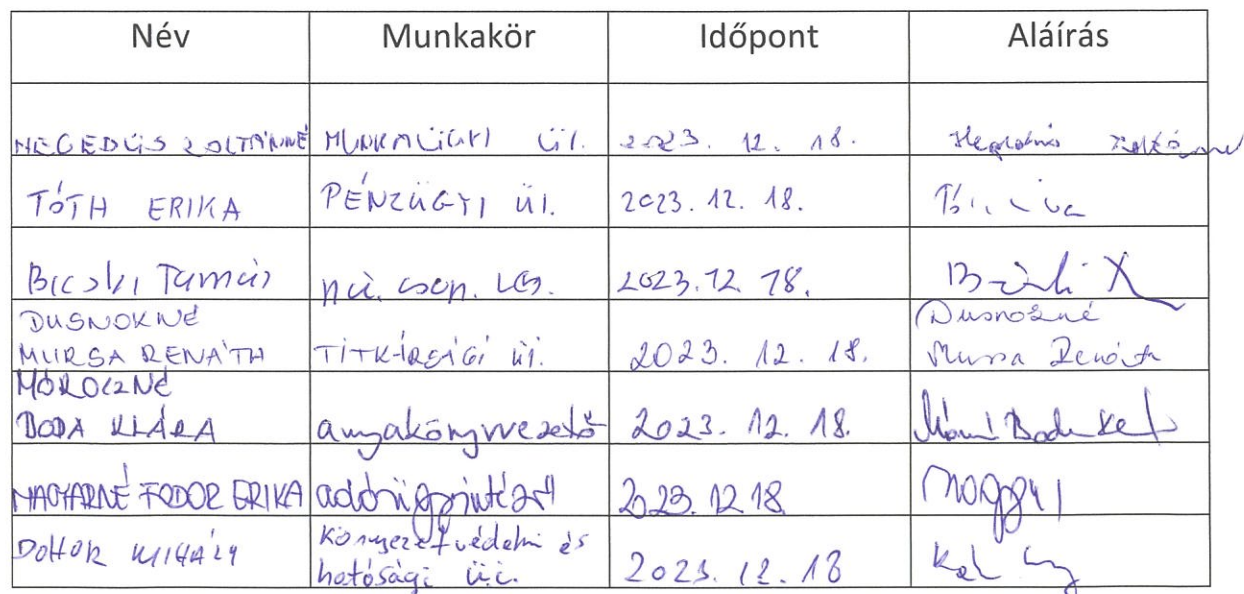 Név Munkakör Időpont Aláírás
HEGEDŰS ZOLTÁNNÉ MUNKAÜGYI ÜI. 2023. 12. 18. Hegedűs Zoltánné
TÓTH ERIKA PÉNZÜGYI ÜI. 2023. 12. 18.
Bicski Tamás pü. csop. 2023. 12. 18.
DUSNOKNÉ Dusnokné
MURSA RENÁTA TITKÁRSÁGI üi. 2023. 12. 18. Mursa Renáta
MÓROCZNÉ
BODA KLÁRA anyakönyvvezető 2023. 12. 18. Boda
MAGYARNÉ FODOR ERIKA adóügyintéző 2023. 12 18
Környezetvédelmi és
MIHÁLY hatósági ü.i. 2023. 12. 18